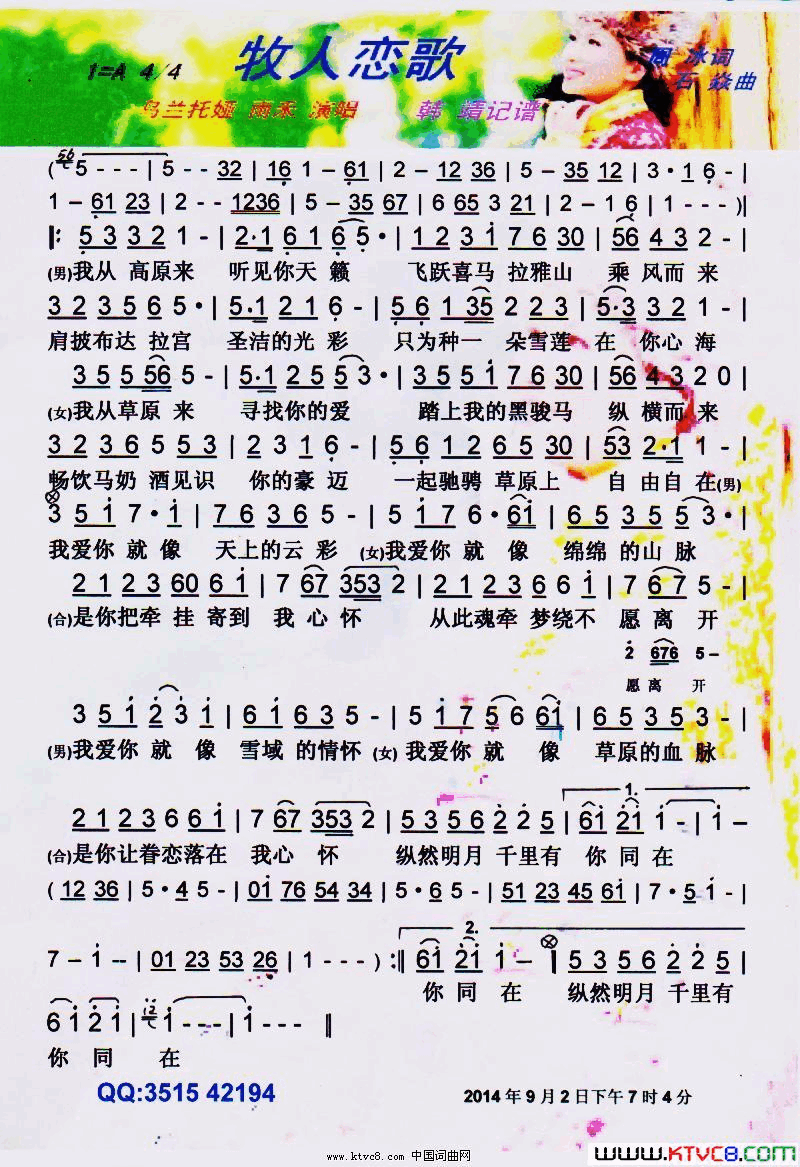 牧人恋歌
1=A 4/4
周 冰词
石 焱曲
乌兰托娅 雨禾 演唱 韩 靖记谱
( 5 - - - | 5 - - 32 | 16 1 - 61 | 2 - 12 16 | 5 - 35 12 | 3 · 1 6 - |
1 - 61 23 | 2 - - 1236 | 5 - 35 67 | 6 65 3 21 | 2 - 1 6 | 1 - - - )‖
‖: 5 3 3 2 1 - | 2·1 6 1 6 5 · | 1 2 3 1 7 6 30 | 56 4 3 2 - |
(男)我从 高原来 听见你天 籁 飞跃喜马 拉雅山 乘 风而 来
3 2 3 5 6 5 · | 5·1 2 1 6 - | 5 6 1 35 2 2 3 | 5·3 3 2 1 - |
肩披布达 拉宫 圣洁的光 彩 只为种一 朵雪莲 在 你心 海
3 5 5 56 5 - | 5·1 2 5 5 3 · | 3 5 5 1 7 6 30 | 56 4 3 2 0 |
(女)我从草原 来 寻找你的 爱 踏上我的黑骏马 纵 横而 来
3 2 3 6 5 5 3 | 2 3 1 6 - | 5 6 1 2 6 5 30 | 53 2·1 1 - |
畅饮马奶 酒见识 你的豪 迈 一起驰骋 草原上 自 由自 在(男)
3 5 1 7 · 1 | 7 6 3 6 5 - | 5 1 7 6 · 61 | 6 5 3 5 5 3 · |
我爱你 就 像 天上的云 彩 (女)我爱你 就 像 绵绵 的山 脉
2 1 2 3 60 6 1 | 7 67 353 2 | 2 1 2 3 6 6 1 | 7 67 5 - |
(合)是你把牵 挂 寄到 我 心 怀 从此魂牵 梦绕不 愿 离 开
2 676 5 -
愿 离 开
3 5 1 2 3 1 | 6 1 6 3 5 - | 5 1 7 5 6 61 | 6 5 3 5 3 - |
(男)我爱你 就 像 雪域 的情怀 (女)我爱你 就 像 草原的血 脉
1.
2 1 2 3 6 6 1 | 7 67 353 2 | 5 3 5 6 2 2 5 | 61 21 1 - | 1 -
(合)是你让眷恋落在 我心 怀 纵然明月 千里有 你 同 在
( 12 36 | 5 · 4 5 - | 01 76 54 34 | 5 - - - | 51 23 45 61 | 7 · 5 1 - |
2.
7 - 1 -- | 01 23 53 26 | 1 - - - ) :‖ 61 21 1 - | 5 3 5 6 2 2 5 |
你 同 在 纵然明月 千里有
6 1 2 1 | 1 - - - | 1 - - ‖
你 同 在
QQ:3515 42194
2014 年 9 月 2 日下午 7 时 4 分
www.ktvc8.com 中国词曲网
www.KTVC8.com